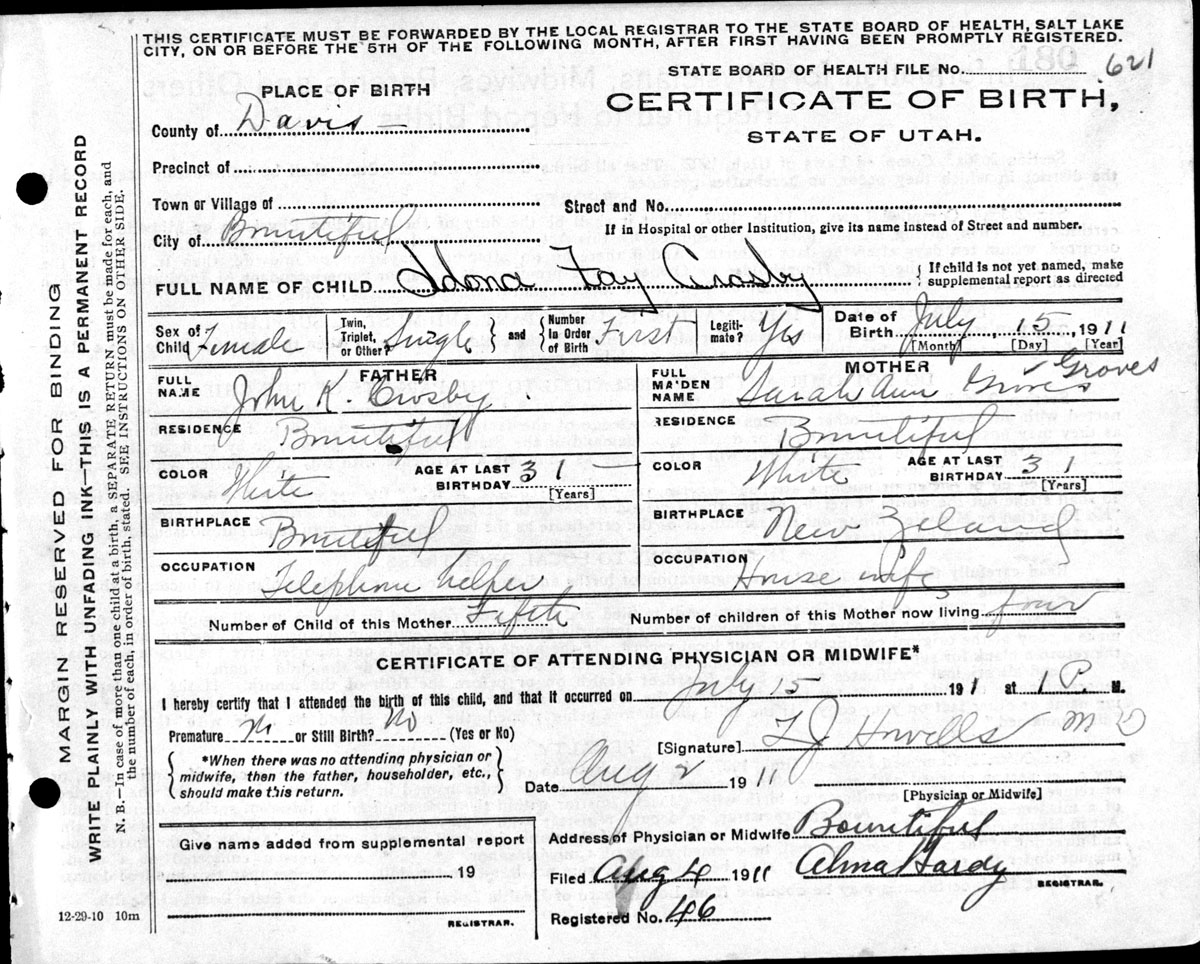 THIS CERTIFICATE MUST BE FORWARDED BY THE LOCAL REGISTRAR TO THE STATE BOARD OF HEALTH, SALT LAKE
CITY, ON OR BEFORE THE 5TH OF THE FOLLOWING MONTH, AFTER FIRST HAVING BEEN PROMPTLY REGISTERED.
STATE BOARD OF HEALTH FILE No. 621
PLACE OF BIRTH
CERTIFICATE OF BIRTH,
STATE OF UTAH.
County of Davis
Precinct of
Town or Village of
Street and No.
City of Bountiful
If in Hospital or other Institution, give its name instead of Street and number.
FULL NAME OF CHILD Idona Fay Crosby
If child is not yet named, make
supplemental report as directed
Sex of Child Female
Twin, Triplet, or Other? Single
and
Number In Order of Birth First
Legitimate? Yes
Date of Birth July 15 1911
[Month] [Day] [Year]
FATHER
FULL NAME John K. Crosby
RESIDENCE Bountiful
COLOR White
AGE AT LAST BIRTHDAY 31
[Years]
BIRTHPLACE Bountiful
OCCUPATION Telephone helper
MOTHER
Groves
FULL MAIDEN NAME Sarah Ann Groves
RESIDENCE Bountiful
COLOR White
AGE AT LAST BIRTHDAY 31
[Years]
BIRTHPLACE New Zeland
OCCUPATION House wife
Number of Child of this Mother Fifth
Number of children of this Mother now living four
CERTIFICATE OF ATTENDING PHYSICIAN OR MIDWIFE*
I hereby certify that I attended the birth of this child, and that it occurred on July 15 191 at 1 P. M.
Premature No or Still Birth? No (Yes or No)
[Signature] Howells M D
*When there was no attending physician or
midwife, then the father, householder, etc.,
should make this return.
Date Aug 2 1911
[Physician or Midwife]
Give name added from supplemental report
19
REGISTRAR.
Address of Physician or Midwife Bountiful
Filed Aug 4 1911 Alma Hardy
REGISTRAR.
Registered No. 46
12-29-10 10m
MARGIN RESERVED FOR BINDING
WRITE PLAINLY WITH UNFADING INK—THIS IS A PERMANENT RECORD
N. B.—In case of more than one child at a birth, a SEPARATE RETURN must be made for each, and
the number of each, in order of birth, stated. SEE INSTRUCTIONS ON OTHER SIDE.